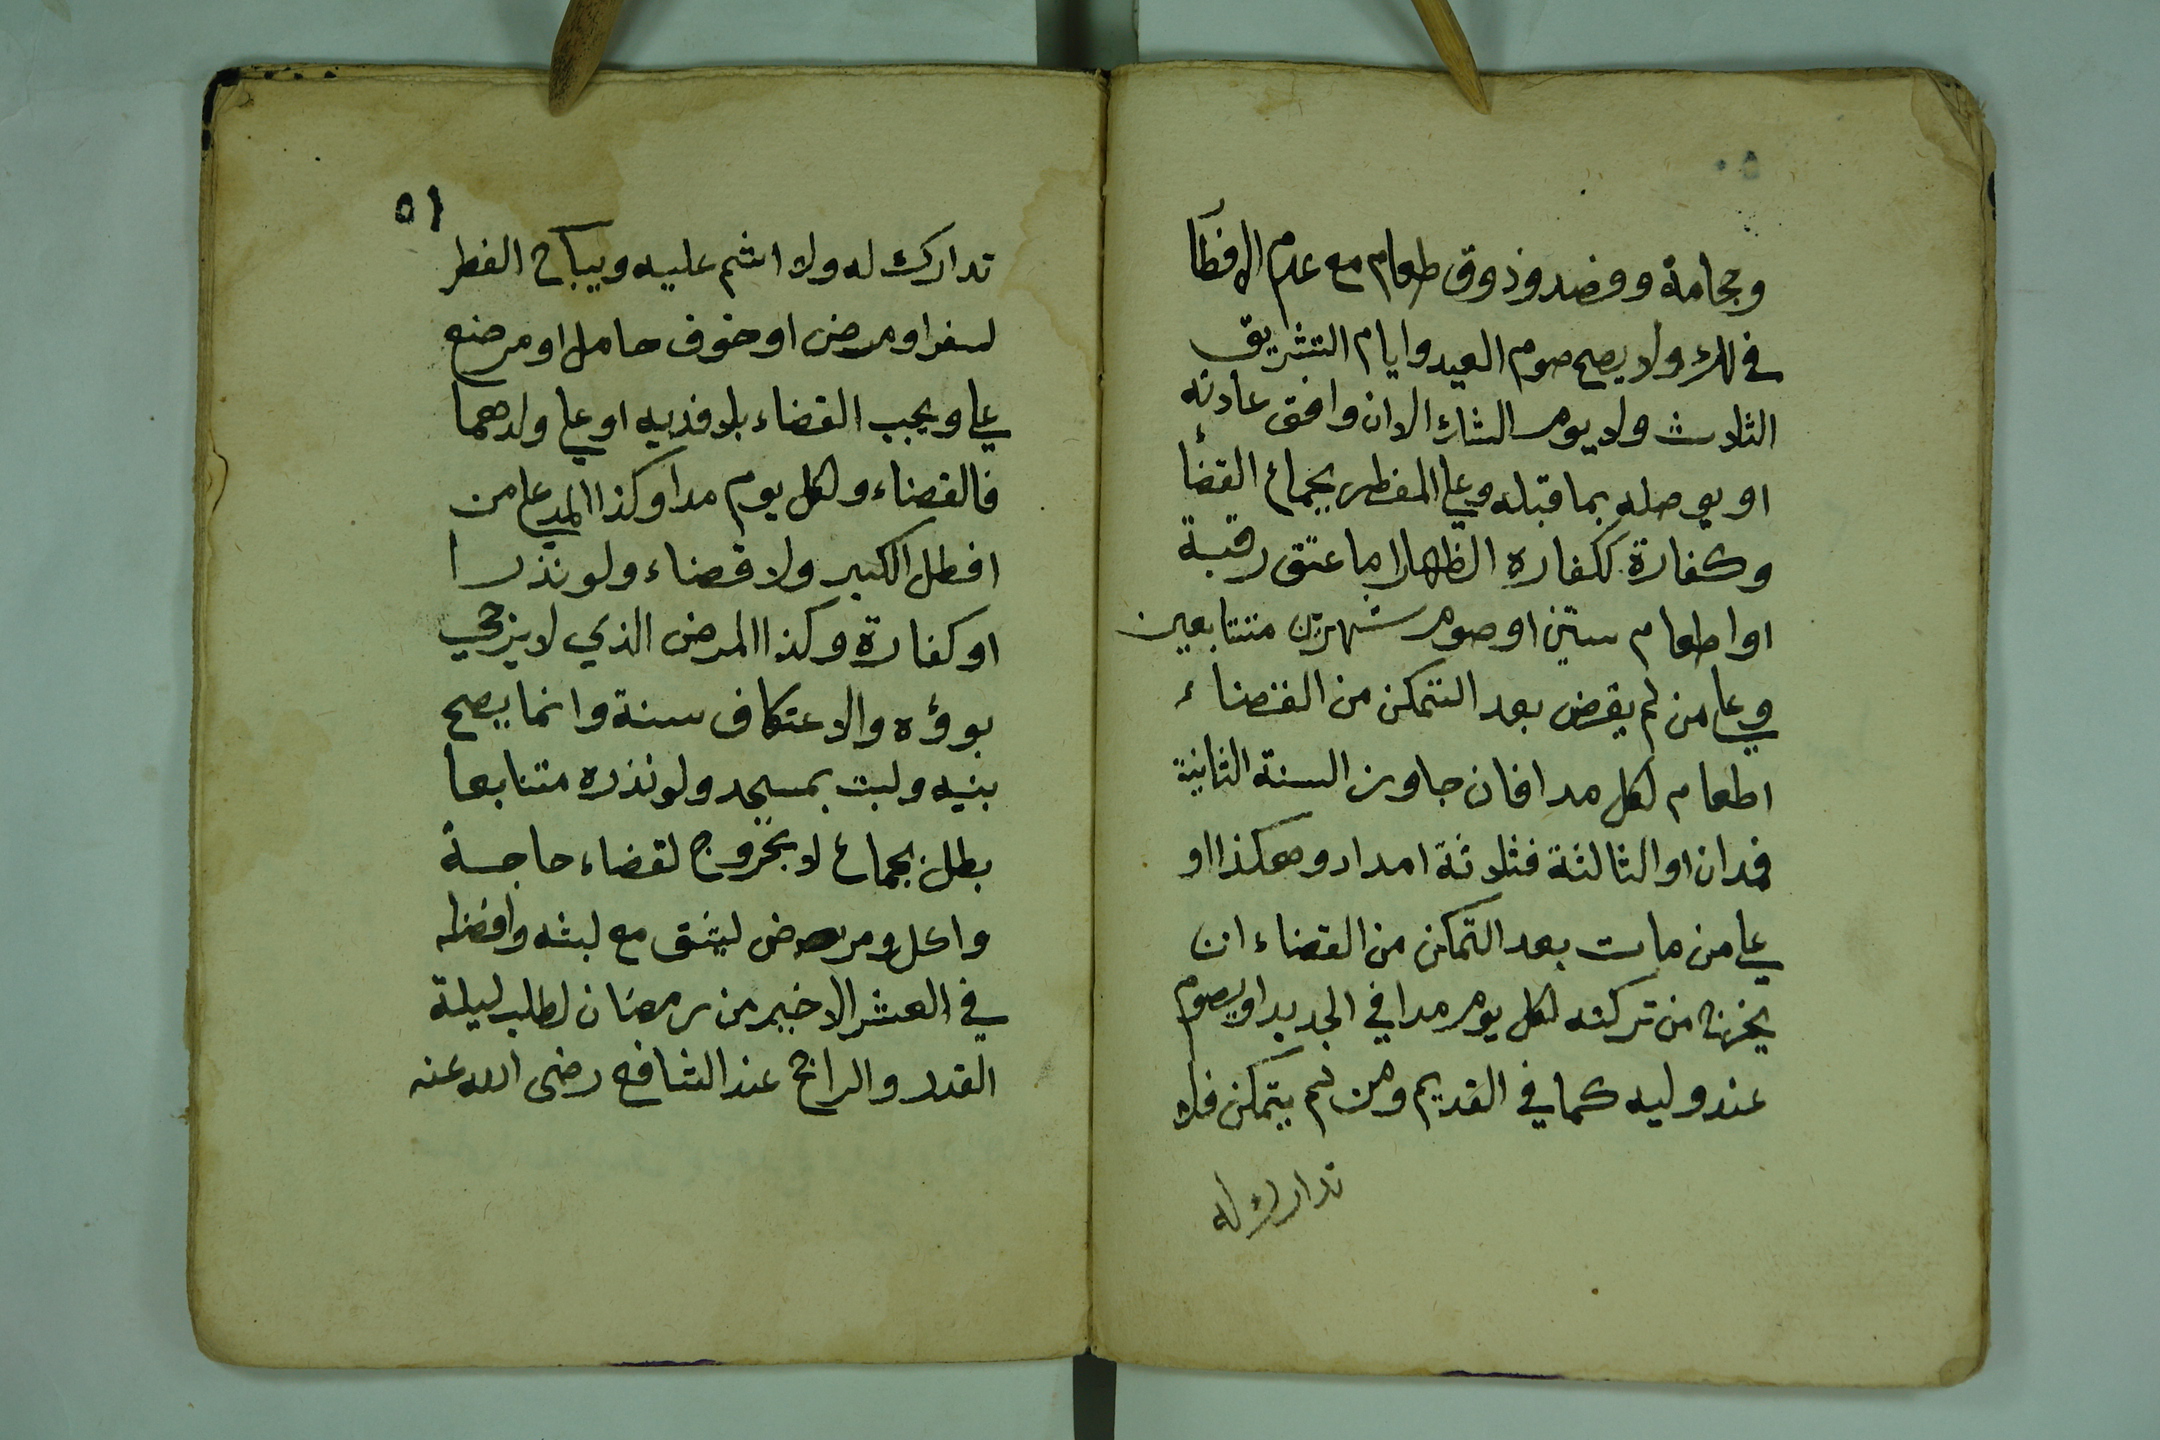 ٥٠
وحجامة وفصد وذوق طعام مع عدم الافطا
في لك ولا يصح صوم العيد وايام التشريق
الثلاث ولا يوم الشك الا ان وافق عادته
او يوصله بما قبله وعلى المفطر بجماع القضأ
وكفارة ككفاره الظهار اما عتق رقبة
او اطعام ستين او صوم شهرين متتابعين
وعلى من لم يقض بعد التمكن من القضاء
اطعام لكل مدا فان جاوز السنة الثانية
فمدان او الثالثة فثلاثة امداد وهكذا او
على من مات بعد التمكن من القضاء ان
يخرج من تركته لكل يوم مدا في الجديد او يصوم
عند وليه كما في القديم ومن لم يتمكن فلا
تدارك له
٥١
تدارك له ولا اثم عليه ويباح الفطر
لسفر او مرض او خوف حامل او مرضع
على ويجب القضاء بلا فديه او على ولدهما
فالقضاء ولكل يوم مدا وكذا المد على من
افطل الكبير ولا قضاء ولو نذرا
او كفارة وكذا المرض الذي لا يرجي
بوؤه والاعتكاف سنة وانما يصح
بنيه ولبت بمسجد ولو نذره متتابعا
بطل بجماع لا بخروج لقضاء حاجة
واكل ومرض ليثق مع لبثه وافضله
في العشر الاخير من رمضان لطلب ليلة
القدر والراجح عند الشافعي رضى الله عنه